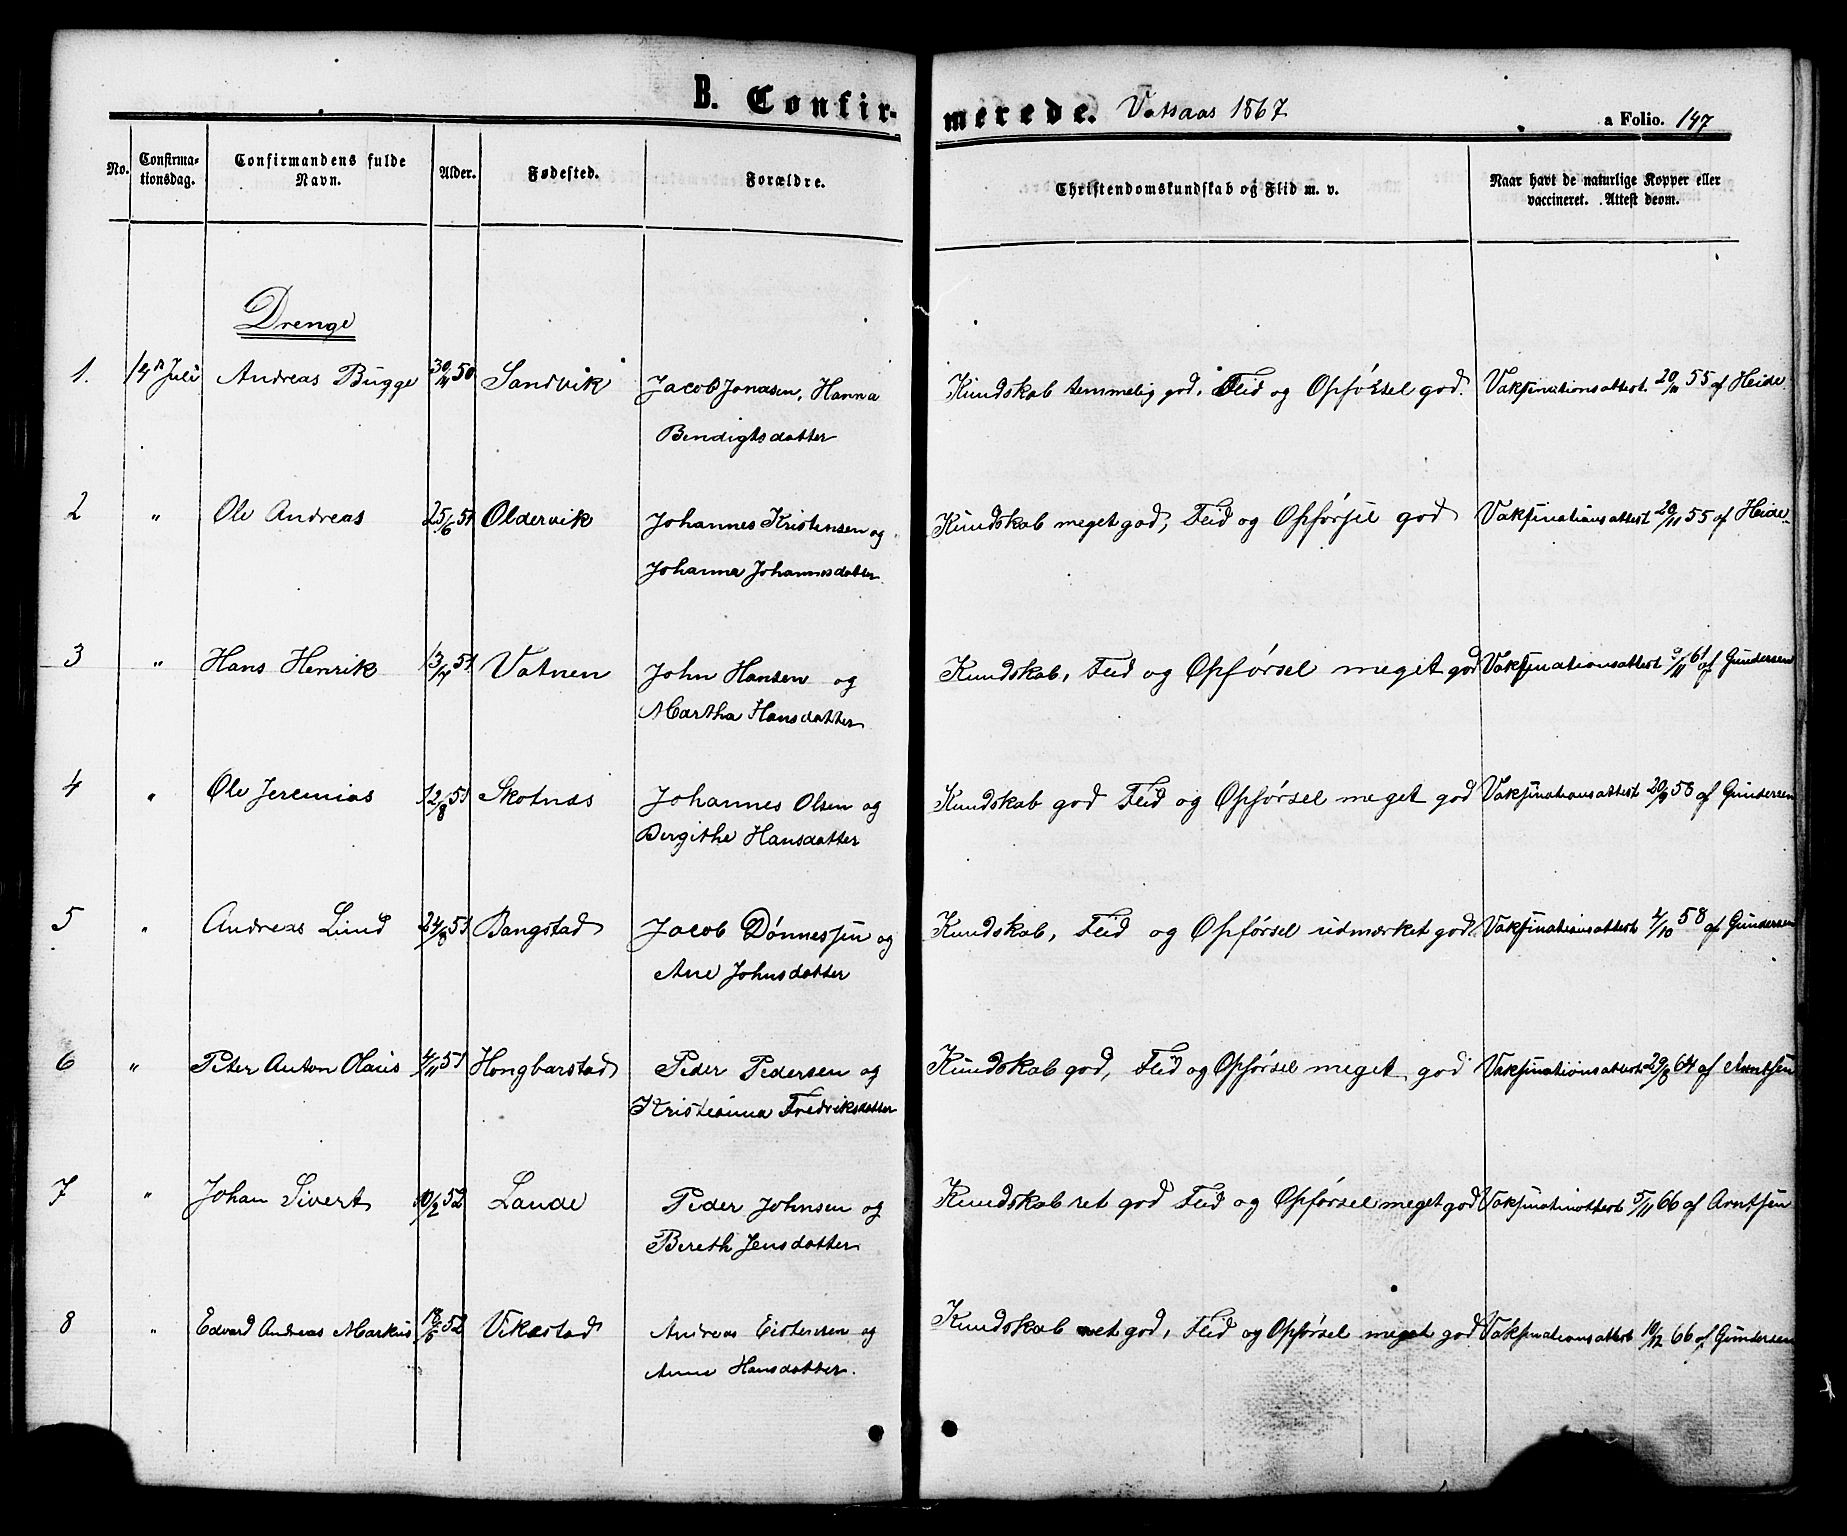 B. Confirmerede. Vatsaas 1867 a Folio. 147
No. Confirmationsdag. Confirmandens fulde Navn. Alder. Fødested. Forældre. Christendomskundskab og Flid m. v. Naar havt de naturlige Kopper eller vaccineret. Attest derom.
Drenge
1. 14de Juli Andreas Bugge 30/4 50 Sandvik Jacob Jonasen, Hanna Kundskab temmelig god. Flid og Opførsel god. Vaksinationsattest 20/11 55 af Heide
Bendigtsdatter
2 " Ole Andreas 25/6 51 Oldervik Johannes Kristensen og Kundskab meget god, Flid og Opførsel god Vaksinationsattest 20/11 55 af Heide
Johanna Johannesdatter
3 " Hans Henrik 13/7 51 Vatnen John Hansen og Kundskab, Flid og Opførsel meget god Vaksinationsattest /11 61 af Gundersen
Martha Hansdatter
4 " Ole Jeremias 12/8 51 Skotnes Johannes Olsen og Kundskab god Flid og Opførsel meget god Vaksinationsattest 20/9 58 af Gundersen
Bergithe Hansdatter
5 " Andreas Lind 24/8 51 Bangstad Jacob Dønnessen og Kundskab, Flid og Opførsel udmærket god Vaksinationsattest 4/10 58 af Gundersen
Ane Johnsdatter
6 " Peter Anton Olaus 4/11 51 Hongbarstad Peder Pedersen og Kundskab god, Flid og Opførsel meget god Vaksinationsattest 29/8 64 af Arntsen
Kristianna Fredriksdatter
7 " Johan Sivert 10/2 52 Lande Peder Johnsen og Kundskab ret god Flid og Opførsel meget god Vaksinationattest 5/11 66 af Arntsen
Bereth Jensdatter
8 " Edvard Andreas Markus 18/5 52 Vikestad Andreas Eistensen og Kundskab ret god, Flid og Opførsel meget god Vaksinationsattest 10/12 66 af Gundersen
Anne Hansdatter.